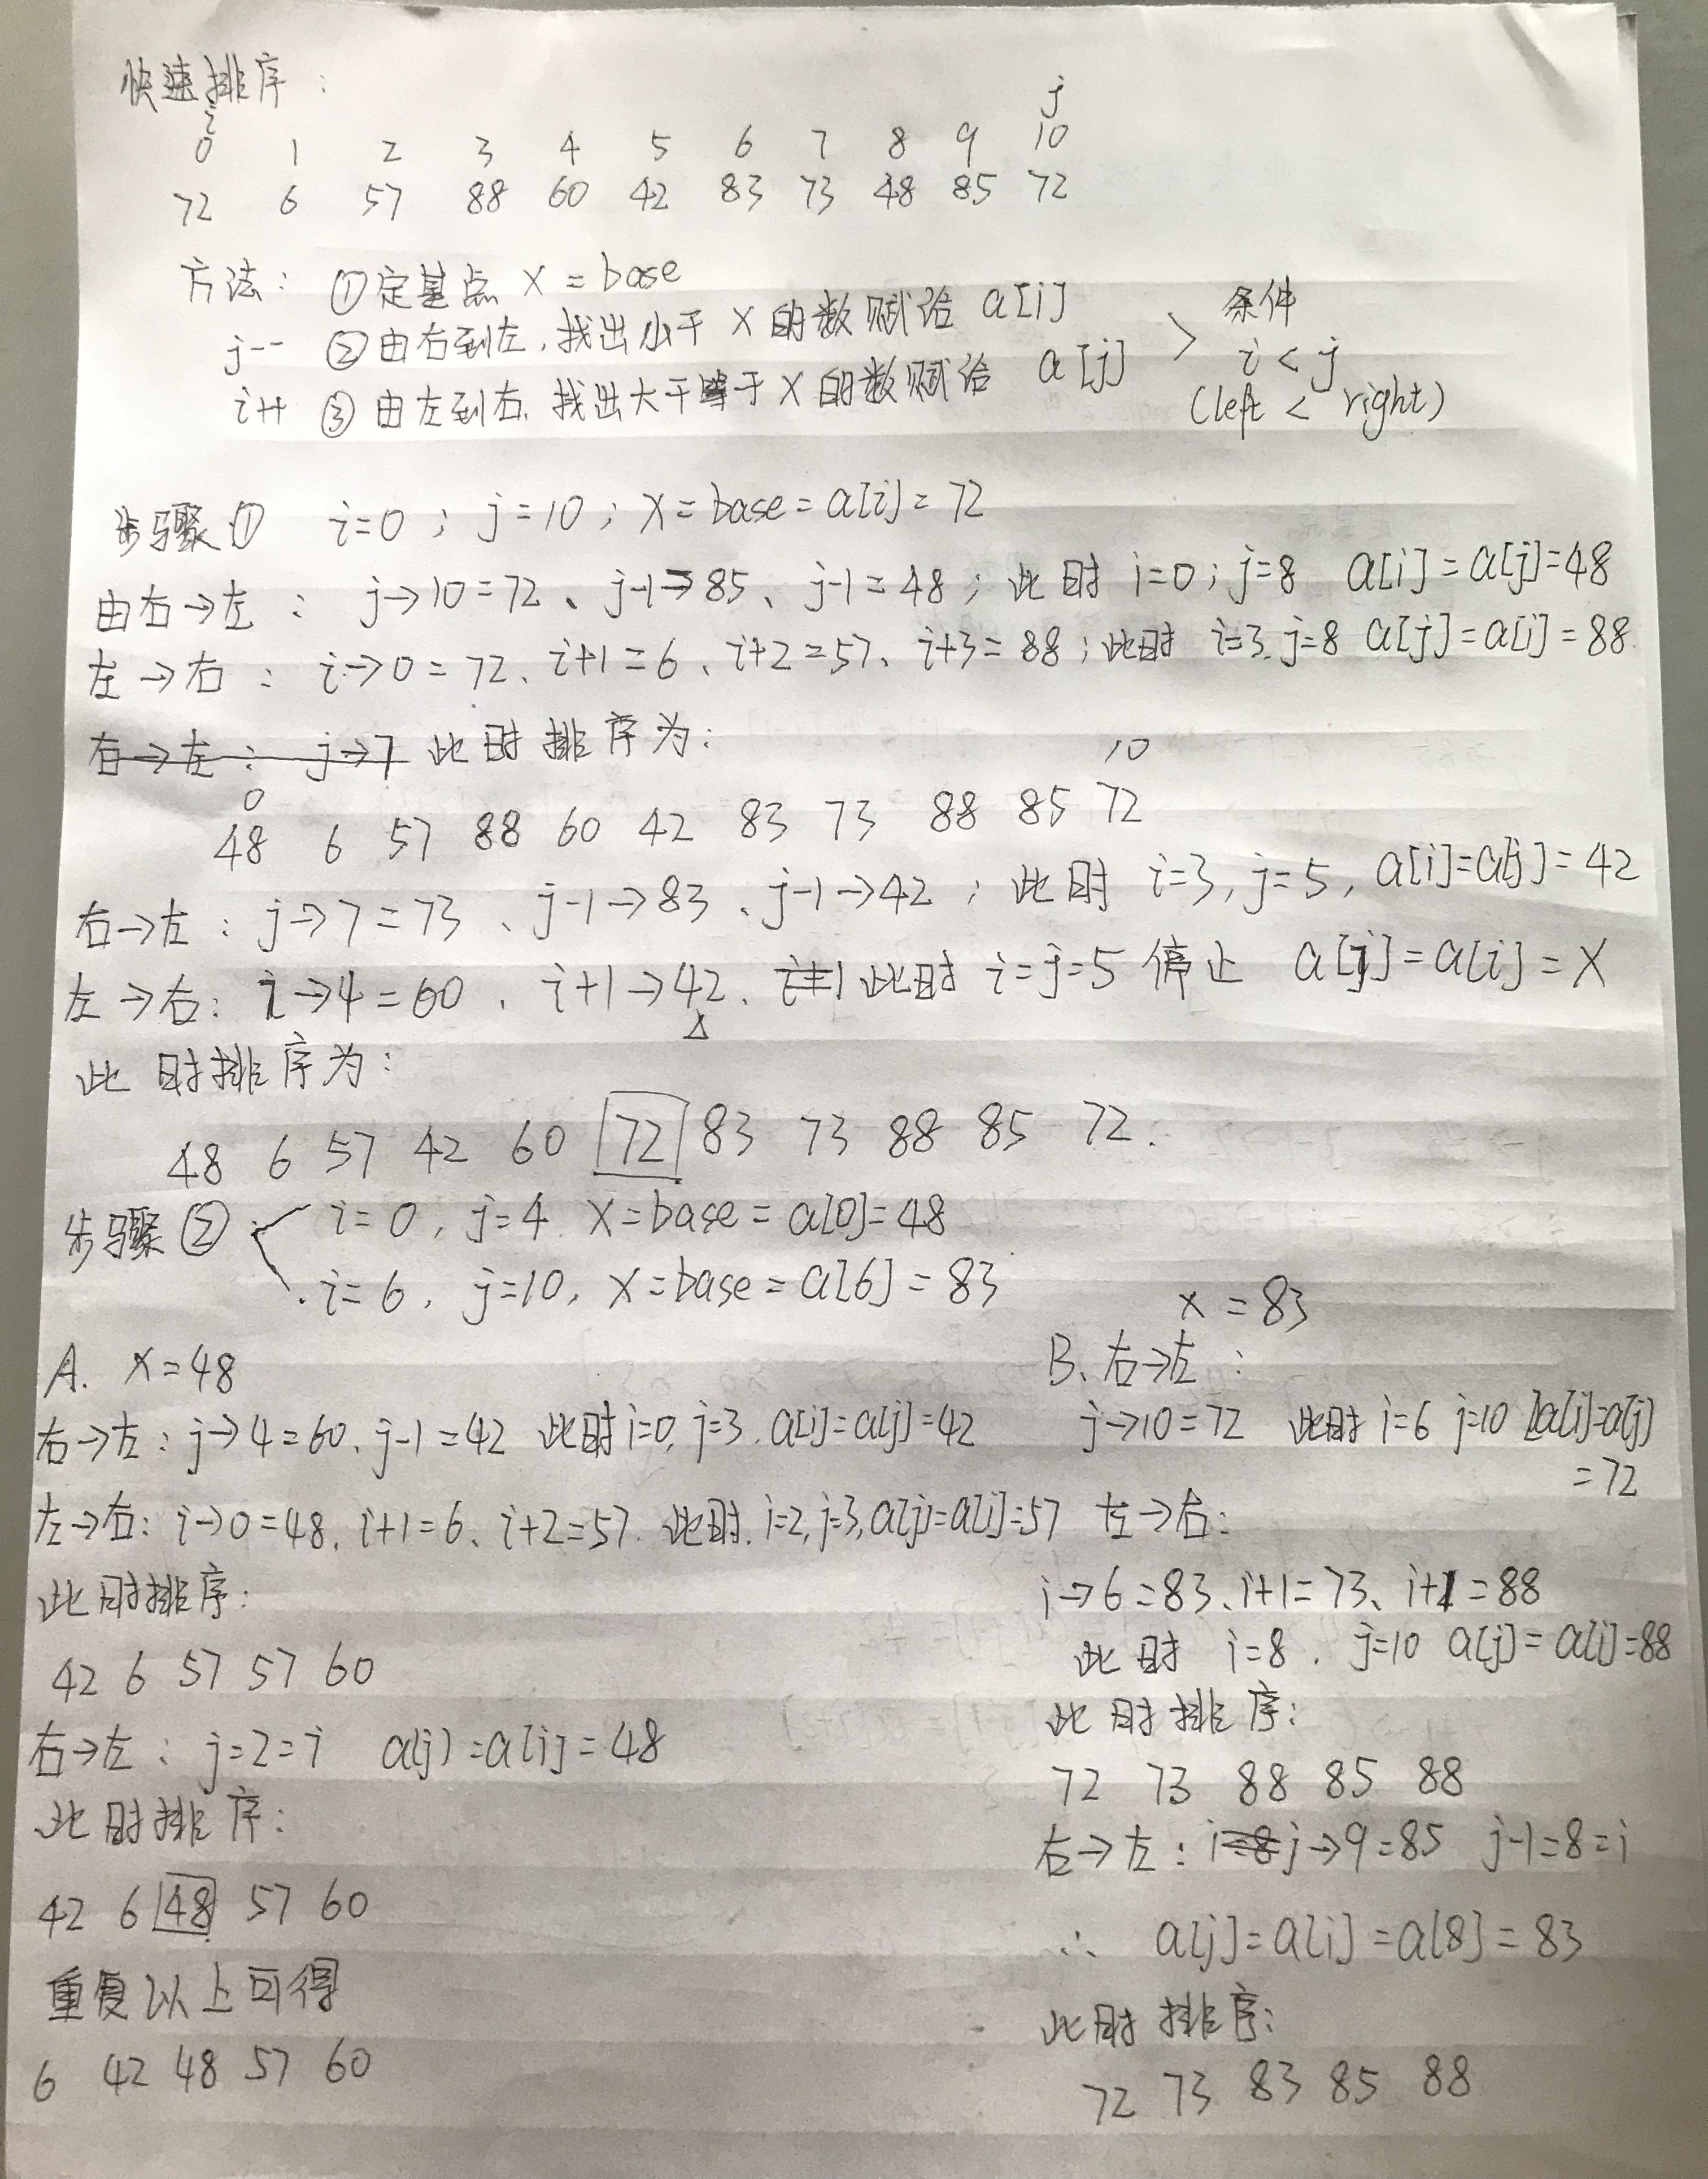 快速排序：
i j
0 1 2 3 4 5 6 7 8 9 10
72 6 57 88 60 42 83 73 48 85 72
方法： ①定基点 X = base
j-- ②由右到左，找出小于 X 的数赋给 a[i] > 条件
i++ ③由左到右，找出大于等于 X 的数赋给 a[j] i < j
(left < right)
步骤① i=0； j=10； X=base=a[i]=72
由右→左： j→10=72、j-1→85、j-1=48； 此时 i=0；j=8 a[i]=a[j]=48
左→右： i→0=72、i+1=6、i+2=57、i+3=88；此时 i=3、j=8 a[j]=a[i]=88.
右→左： j→7 此时排序为：
0 10
48 6 57 88 60 42 83 73 88 85 72
右→左：j→7=73、j-1→83、j-1→42； 此时 i=3，j=5，a[i]=a[j]=42
左→右：i→4=60、i+1→42、此时 i=j=5 停止 a[j]=a[i]=X
此时排序为：
48 6 57 42 60 72 83 73 88 85 72.
步骤② i=0，j=4 X=base=a[0]=48
i=6，j=10，X=base=a[6]=83
A. X=48
右→左：j→4=60、j-1=42 此时i=0，j=3、a[i]=a[j]=42
左→右：i→0=48、i+1=6、i+2=57. 此时. i=2，j=3，a[j]=a[i]=57
此时排序：
42 6 57 57 60
右→左： j=2=i a[j]=a[i]=48
此时排序：
42 6 48 57 60
重复以上可得
6 42 48 57 60
x=83
B、右→左：
j→10=72 此时 i=6 j=10 a[i]=a[j]
=72
左→右：
i→6=83、i+1=73、i+1=88
此时 i=8. j=10 a[j]=a[i]=88
此时排序：
72 73 88 85 88
右→左：i=8 j→9=85 j-1=8=i
∴ a[j]=a[i]=a[8]=83
此时排序：
72 73 83 85 88